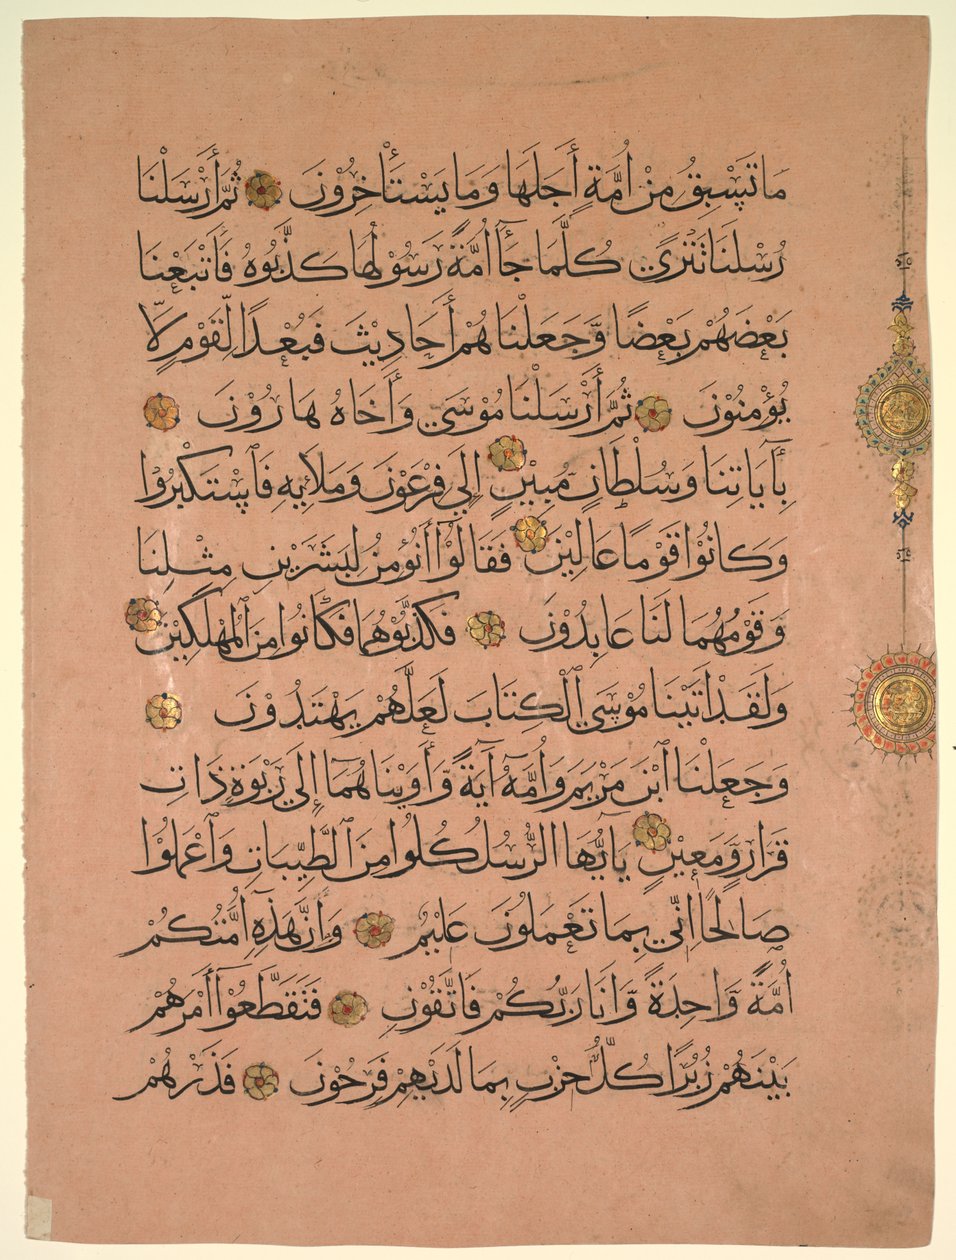 مَا تَسْبِقُ مِنْ أُمَّةٍ أَجَلَهَا وَمَا يَسْتَأْخِرُوْنَ ثُمَّ أَرْسَلْنَا
رُسْلَنَا تَتْرَىٰ كُلَّمَا جَآءَ أُمَّةً رَسُوْلُهَا كَذَّبُوْهُ فَأَتْبَعْنَا
بَعْضَهُمْ بَعْضًا وَّجَعَلْنَاهُمْ أَحَادِيْثَ فَبُعْدًا لِّقَوْمٍ لَّا
يُؤْمِنُوْنَ ثُمَّ أَرْسَلْنَا مُوْسَىٰ وَأَخَاهُ هَارُوْنَ
بِآَيَاتِنَا وَسُلْطَانٍ مُبِيْنٍ إِلَىٰ فِرْعَوْنَ وَمَلَائِهِ فَاسْتَكْبَرُوْا
وَكَانُوْا قَوْمًا عَالِيْنَ فَقَالُوْآ أَنُؤْمِنُ لِبَشَرَيْنِ مِثْلِنَا
وَقَوْمُهُمَا لَنَا عَابِدُوْنَ فَكَذَّبُوْهُمَا فَكَانُوْا مِنَ الْمُهْلَكِيْنَ
وَلَقَدْ اٰتَيْنَا مُوْسَى الْكِتَابَ لَعَلَّهُمْ يَهْتَدُوْنَ
وَجَعَلْنَا ابْنَ مَرْيَمَ وَأُمَّهُ آيَةً وَّأَوَيْنَاهُمَآ إِلَىٰ رَبْوَةٍ ذَاتِ
قَرَارٍ وَّمَعِيْنٍ يَآ أَيُّهَا الرُّسُلُ كُلُوْا مِنَ الطَّيِّبَاتِ وَاعْمَلُوْا
صَالِحًا اِنِّي بِمَا تَعْمَلُوْنَ عَلِيْمٌ وَاِنَّ هَذِهِ اُمَّتُكُمْ
اُمَّةً وَّاحِدَةً وَّاَنَا رَبُّكُمْ فَاتَّقُوْنِ فَتَقَطَّعُوْآ أَمْرَهُمْ
بَيْنَهُمْ زُبُرًا كُلُّ حِزْبٍ بِمَا لَدَيْهِمْ فَرِحُوْنَ فَذَرْهُمْ